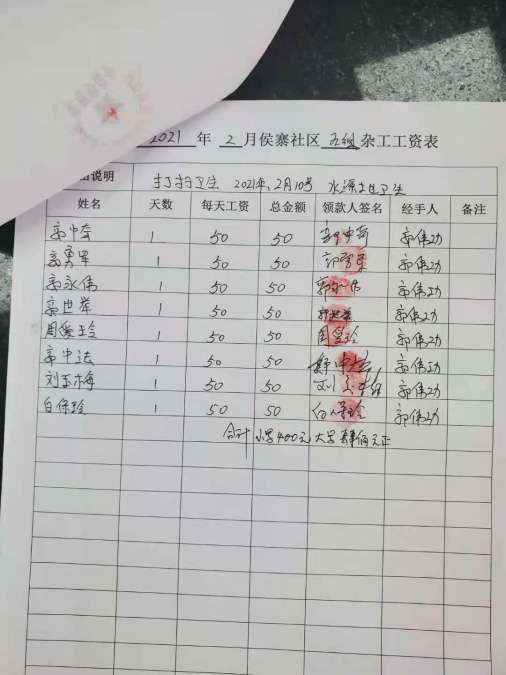 2021 年 2 月侯寨社区 五组 杂工工资表
说明 打扫卫生 2021年2月10号 水源地卫生
姓名 天数 每天工资 总金额 领款人签名 经手人 备注
郭中奇 1 50 50 郭中奇 郭伟功
郭勇军 1 50 50 郭勇军 郭伟功
郭永伟 1 50 50 郭永伟 郭伟功
郭世举 1 50 50 郭世举 郭伟功
周爱玲 1 50 50 周爱玲 郭伟功
郭中达 1 50 50 郭伟功
刘玉梅 1 50 50 刘玉梅 郭伟功
白保玲 1 50 50 白保玲 郭伟功
合计 小写400元 大写肆佰元正